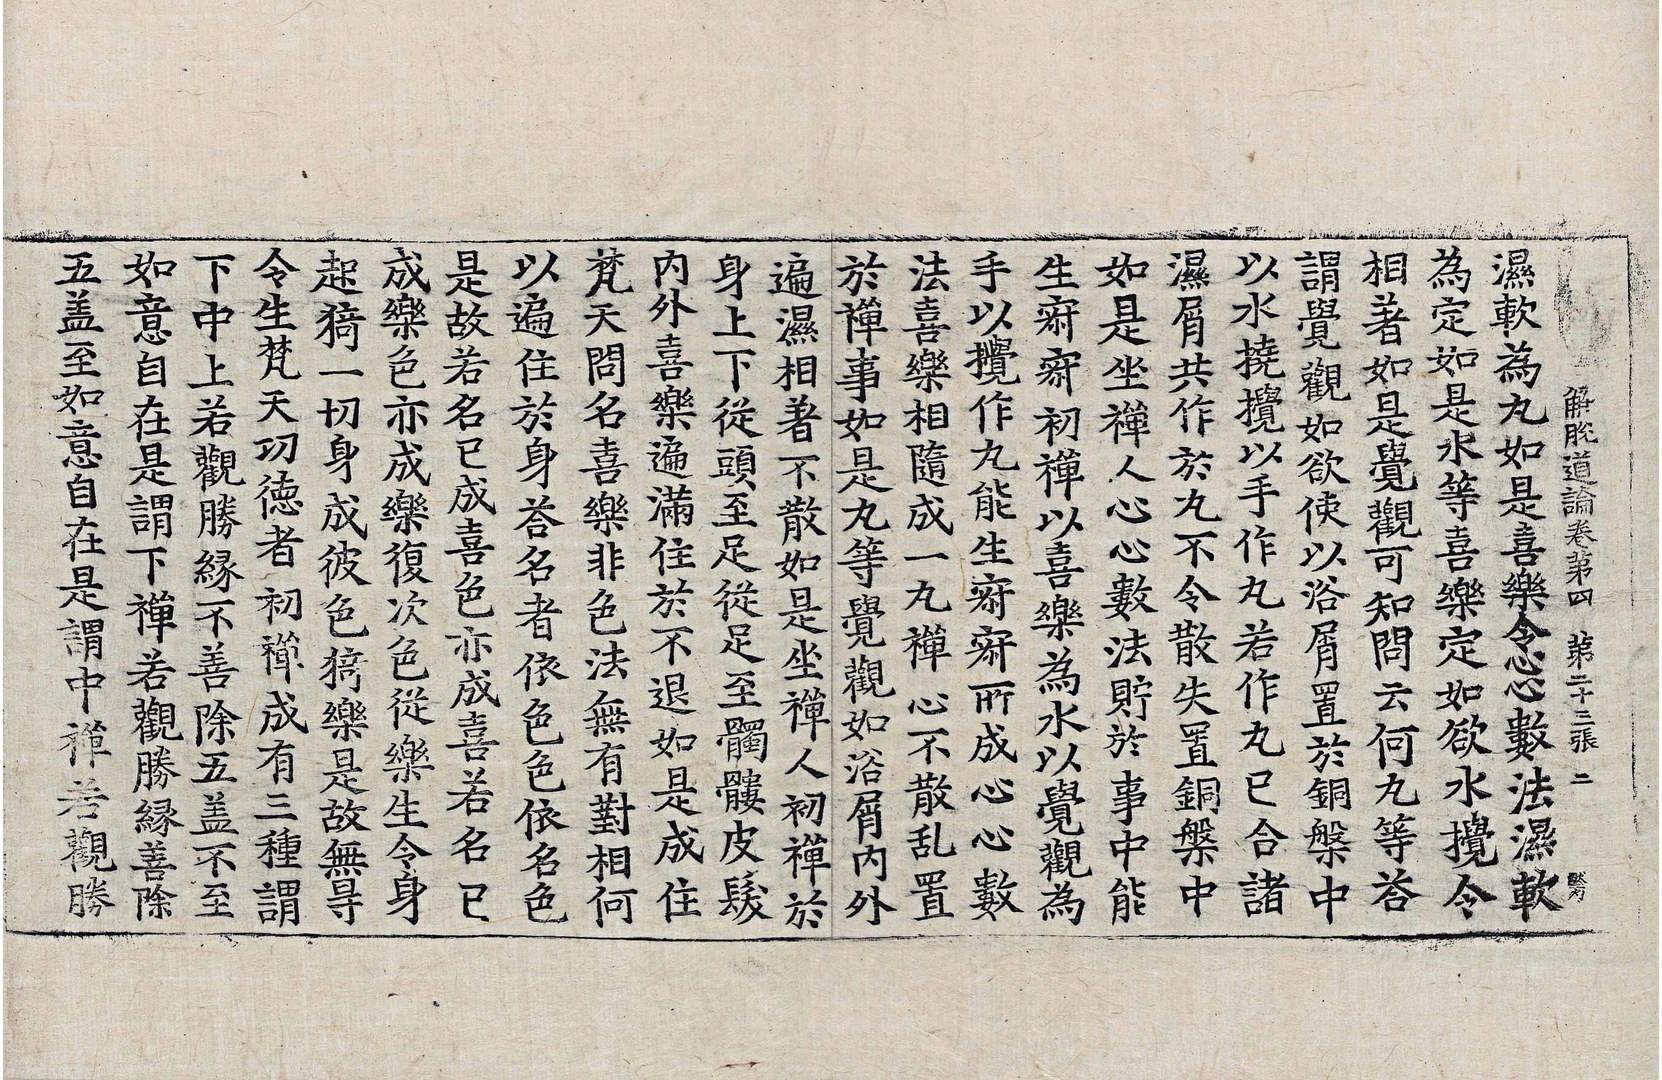 解脫道論卷第四 第二十三張 二 黙
濕軟為丸如是喜樂令心心數法濕軟
為定如是水等喜樂定如欲水攪令
相著如是覺觀可知問云何丸等荅
謂覺觀如欲使以浴屑置於銅槃中
以水撓攪以手作丸若作丸已合諸
濕屑共作於丸不令散失置銅槃中
如是坐禪人心心數法貯於事中能
生㝛㝛初禪以喜樂為水以覺觀為
手以攪作丸能生㝛㝛所成心心數
法喜樂相隨成一丸禪心不散乱置
於禪事如是丸等覺觀如浴屑內外
遍濕相著不散如是坐禪人初禪於
身上下從頭至足從足至髑髏皮髮
內外喜樂遍滿住於不退如是成住
梵天問名喜樂非色法無有對相何
以遍住於身荅名者依色色依名色
是故若名已成喜色亦成喜若名已
成樂色亦成樂復次色從樂生令身
起猗一切身成彼色猗樂是故無㝵
令生梵天功德者初禪成有三種謂
下中上若觀勝緣不善除五盖不至
如意自在是謂下禪若觀勝緣善除
五盖至如意自在是謂中禪若觀勝